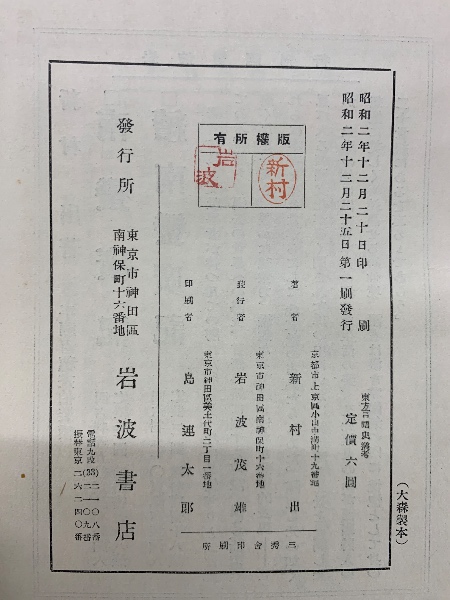 昭和二年十二月二十日印刷
昭和二年十二月二十五日第一刷發行
東方言語史叢考
定價六圓
(大森製本)
版權所有
新村
岩波
京都市上京區小山中溝町十九番地
著者 新村出
東京市神田區南神保町十六番地
發行者 岩波茂雄
東京市神田區美土代町二丁目一番地
印刷者 島連太郎
三秀舍印刷所
發行所
東京市神田區
南神保町十六番地
岩波書店
電話九段(33)
二一〇八番
二一〇九番
振替東京二六二四〇番